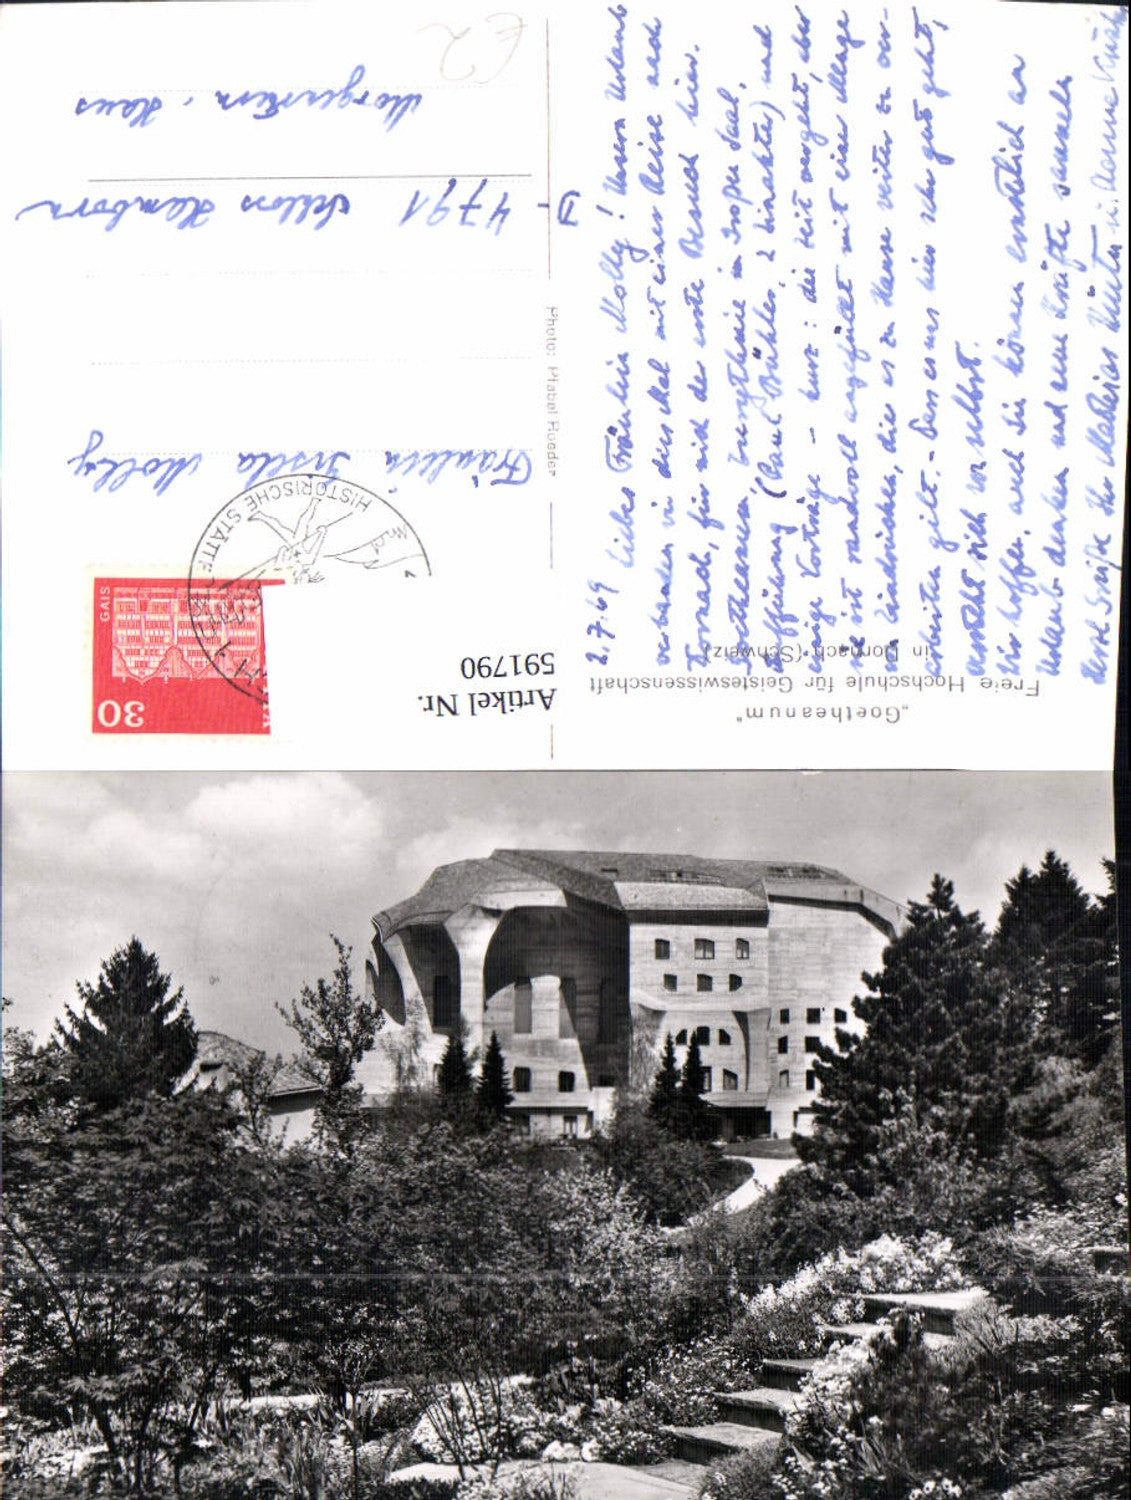 „Goetheanum"
Freie Hochschule für Geisteswissenschaft
in Dornach (Schweiz)
2.7.69
Liebes Fräulein Molly! Unsern Urlaub
verbanden wir dies Mal mit einer Reise nach
Dornach, für mich der erste Besuch hier.
Goetheanum, Eurythmie im großen Saal,
Aufführung (Paul Bühler, 2 Einakter) und
einige Vorträge – kurz: die Zeit vergeht, aber
sie ist randvoll angefüllt mit einer Menge
an Eindrücken, die es zu Hause weiter zu ver-
arbeiten gilt. – Dass es uns hier sehr gut geht,
versteht sich von selbst.
Wir hoffen, auch Sie können endlich an
Urlaub denken und neue Kräfte sammeln
Herzl. Grüße Ihr Mathias
Photo: Pfabel Roeder
Artikel Nr.
591790
30
GAIS
HISTORISCHE STÄTTE
Fräulein Gisela Molly
D-4791 Schloss Hamborn
Morgenstern-Haus
€2